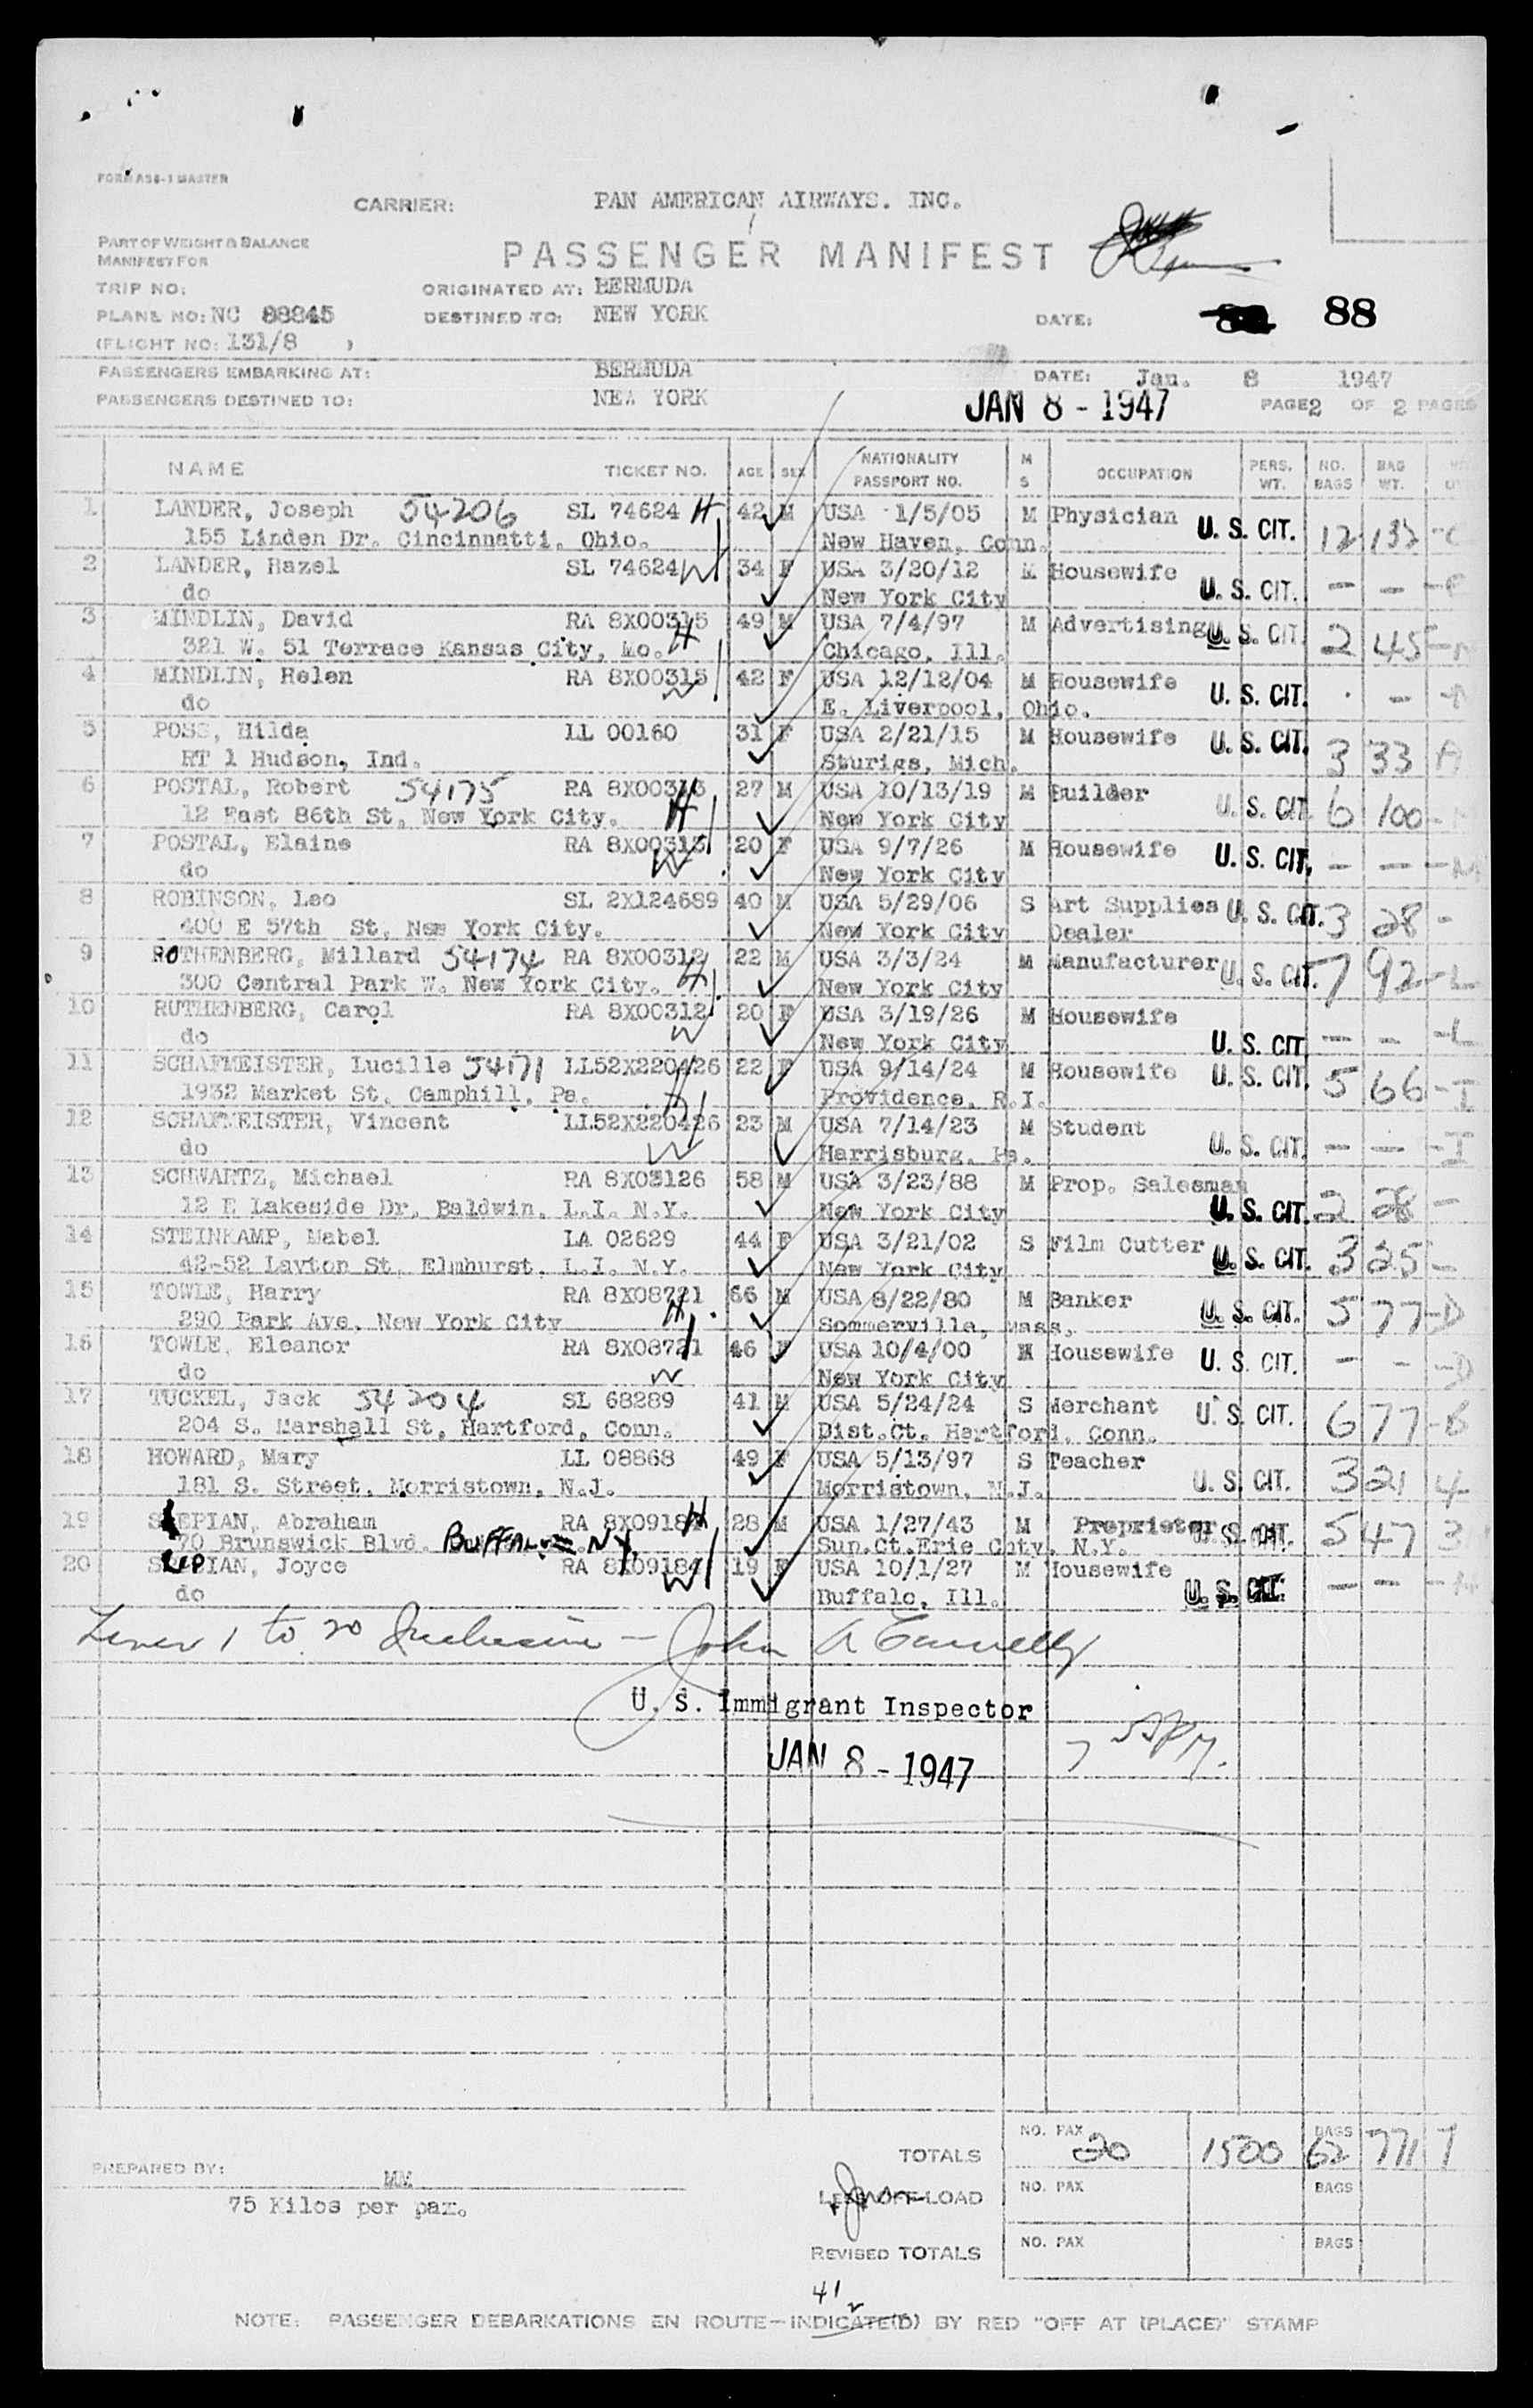 FORM A36-1 MASTER
CARRIER: PAN AMERICAN AIRWAYS. INC.
PART OF WEIGHT & BALANCE
MANIFEST FOR
PASSENGER MANIFEST
TRIP NO: ORIGINATED AT: BERMUDA
PLANE NO: NC 88845 DESTINED TO: NEW YORK DATE: 88
(FLIGHT NO: 131/8 )
PASSENGERS EMBARKING AT: BERMUDA DATE: Jan. 8 1947
PASSENGERS DESTINED TO: NEW YORK JAN 8 - 1947 PAGE 2 OF 2 PAGES
NAME TICKET NO. AGE SEX NATIONALITY PASSPORT NO. M S OCCUPATION PERS. WT. NO. BAGS BAG WT.
1 LANDER, Joseph 54206 SL 74624 H 42 M USA 1/5/05 M Physician U. S. CIT. 12 132
155 Linden Dr. Cincinnatti, Ohio. New Haven, Conn.
2 LANDER, Hazel SL 74624 W 34 F USA 3/20/12 M Housewife U. S. CIT. - -
do New York City
3 MINDLIN, David RA 8X00315 49 M USA 7/4/97 M Advertising U. S. CIT. 2 45
321 W. 51 Terrace Kansas City, Mo. H Chicago, Ill.
4 MINDLIN, Helen RA 8X00315 42 F USA 12/12/04 M Housewife U. S. CIT. -
do W E. Liverpool, Ohio.
5 POSS, Hilda LL 00160 31 F USA 2/21/15 M Housewife U. S. CIT. 3 33 A
RT 1 Hudson, Ind. Sturigs, Mich.
6 POSTAL, Robert 54175 RA 8X00313 27 M USA 10/13/19 M Builder U. S. CIT. 6 100
12 East 86th St, New York City. H New York City
7 POSTAL, Elaine RA 8X00313 20 F USA 9/7/26 M Housewife U. S. CIT. - - - M
do W New York City
8 ROBINSON, Leo SL 2X124689 40 M USA 5/29/06 S Art Supplies U. S. CIT. 3 28 -
400 E 57th St, New York City. New York City Dealer
9 ROTHENBERG, Millard 54174 RA 8X00312 22 M USA 3/3/24 M Manufacturer U. S. CIT. 7 92 - L
300 Central Park W. New York City. H New York City
10 RUTHENBERG, Carol RA 8X00312 20 F USA 3/19/26 M Housewife U. S. CIT. - - - L
do W New York City
11 SCHAFMEISTER, Lucille 54171 LL52X220426 22 F USA 9/14/24 M Housewife U. S. CIT. 5 66 - I
1932 Market St. Camphill, Pa. H Providence, R.I.
12 SCHAFMEISTER, Vincent LL52X220426 23 M USA 7/14/23 M Student U. S. CIT. - - - I
do W Harrisburg, Pa.
13 SCHWARTZ, Michael RA 8X03126 58 M USA 3/23/88 M Prop. Salesman U. S. CIT. 2 28 -
12 E Lakeside Dr, Baldwin, L.I. N.Y. New York City
14 STEINKAMP, Mabel LA 02629 44 F USA 3/21/02 S Film Cutter U. S. CIT. 3 25 -
42-52 Layton St, Elmhurst, L.I. N.Y. New York City
15 TOWLE, Harry RA 8X08721 66 M USA 8/22/80 M Banker U. S. CIT. 5 77 - D
290 Park Ave. New York City H Sommerville, Mass.
16 TOWLE, Eleanor RA 8X08721 46 F USA 10/4/00 M Housewife U. S. CIT. - - - D
do W New York City
17 TUCKEL, Jack 54204 SL 68289 41 M USA 5/24/24 S Merchant U. S. CIT. 6 77 - B
204 S. Marshall St, Hartford, Conn. Dist.Ct. Hartford, Conn.
18 HOWARD, Mary LL 08868 49 F USA 5/13/97 S Teacher U. S. CIT. 3 21 4
181 S. Street, Morristown, N.J. Morristown, N.J.
19 Abraham RA 8X09184 H 28 M USA 1/27/43 M Proprietor U. S. CIT. 5 47 3
70 Brunswick Blvd. BUFFALO NY. Sup.Ct.Erie Cnty. N.Y.
20 Joyce RA 8X09184 W 19 F USA 10/1/27 M Housewife U. S. CIT. - - -
do Buffalo, Ill.
1 to 20 Inclusive - John A
U. S. Immigrant Inspector
JAN 8 - 1947
TOTALS NO. PAX 20 1500 BAGS 62 771 7
PREPARED BY: MM
75 Kilos per pax.
LESS OFF-LOAD NO. PAX BAGS
REVISED TOTALS NO. PAX BAGS
41
NOTE: PASSENGER DEBARKATIONS EN ROUTE—INDICATE(D) BY RED "OFF AT (PLACE)" STAMP